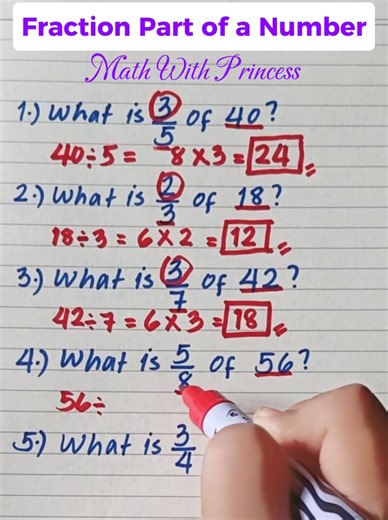 Fraction Part of a Number
Math With Princess
1.) What is 3/5 of 40?
40÷5 = 8 x 3 = 24
2.) What is 2/3 of 18?
18÷3 = 6 x 2 = 12
3.) What is 3/7 of 42?
42÷7 = 6 x 3 = 18
4.) What is 5/8 of 56?
56÷
5.) What is 3/4